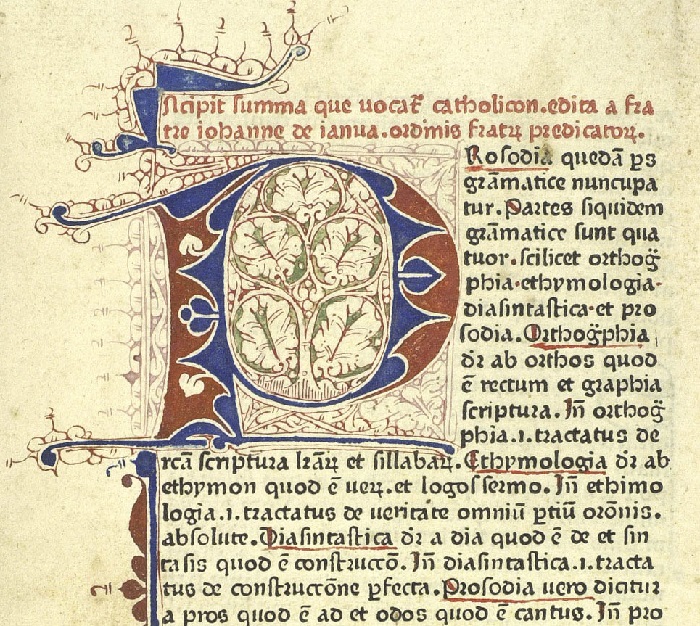 Incipit summa que vocat᷑ catholicon.edita a fra
tre iohanne de ianua.ordinis fratꝝ predicatoꝝ.
PRosodia quedā ꝑs
grāmatice nuncupa
tur. Partes siquidem
grāmatice sunt qua
tuor. scilicet orthog̈
phia.ethymologia.
diasintastica.et pro
sodia. Orthog̈phia
dr̄ ab orthos quod
ē rectum et graphia
scriptura. Jn̄ orthog̈
phia.i.tractatus de
rcā scriptura lr̄aꝝ et sillabaꝝ. Ethymologia dr̄ ab
ethymon quod ē veꝝ.et logos sermo. Jn̄ ethimo
logia.i.tractatus de veritate omniū ꝑtiū orōnis.
absolute. Diasintastica dr̄ a dia quod ē de et sin
tasis quod ē construccō. Jn̄ diasintastica.i.tracta
tus de construccōne ꝑfecta. Prosodia vero dicitur
a pros quod ē ad et odos quod ē cantus. Jn̄ pro